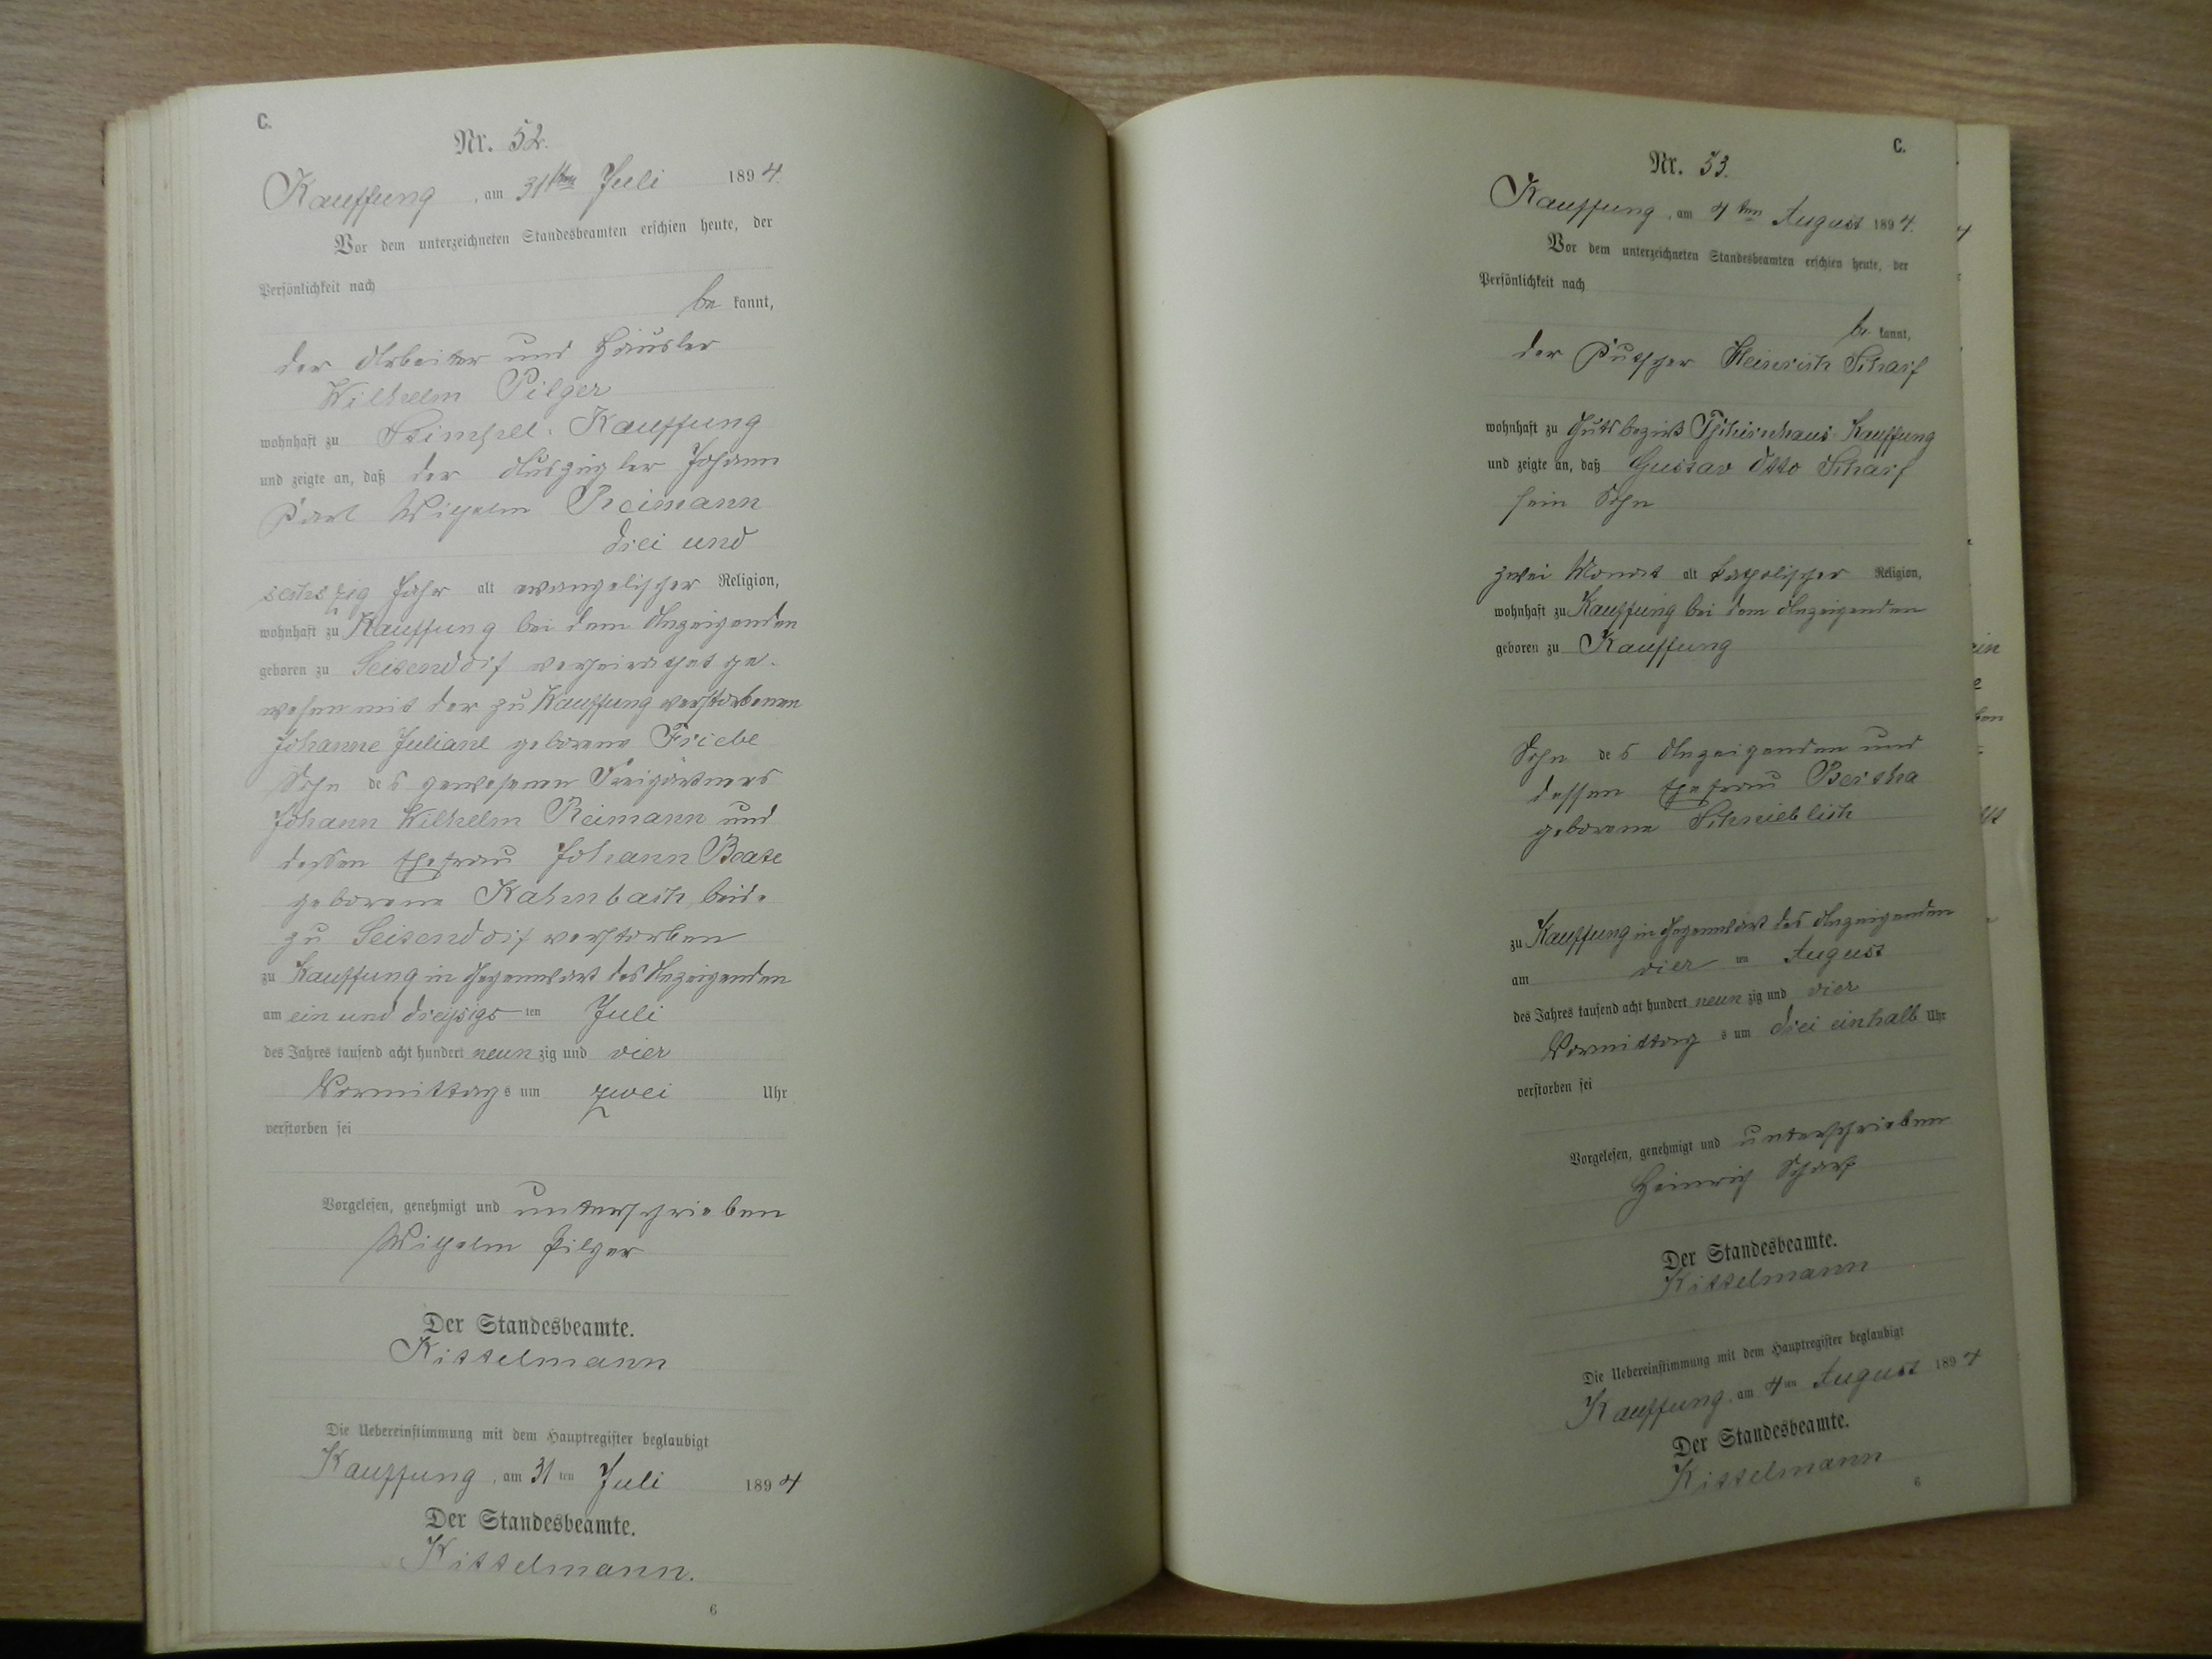 C.
Nr. 52.
Kauffung, am 31ten Juli 1894.
Vor dem unterzeichneten Standesbeamten erschien heute, der
Persönlichkeit nach
be kannt,
der Arbeiter und Häusler
Wilhelm Pilger
wohnhaft zu Stimpel-Kauffung
und zeigte an, daß der Auszügler Johann
Karl Wilhelm Reimann
drei und
sechszig Jahr alt evangelischer Religion,
wohnhaft zu Kauffung bei dem Anzeigenden
geboren zu Seitendorf verheirathet ge-
wesen mit der zu Kauffung verstorbenen
Johanne Juliane geborene Friebe
Sohn des gewesenen Freigärtners
Johann Wilhelm Reimann und
dessen Ehefrau Johann Beate
geborene Kahnbach, beide
zu Seitendorf verstorben
zu Kauffung in Gegenwart des Anzeigenden
am ein und dreißigsten Juli
des Jahres tausend acht hundert neunzig und vier
Vormittags um zwei Uhr
verstorben sei
Vorgelesen, genehmigt und unterschrieben
Wilhelm Pilger
Der Standesbeamte.
Kittelmann
Die Uebereinstimmung mit dem Hauptregister beglaubigt
Kauffung, am 31ten Juli 1894
Der Standesbeamte.
Kittelmann.
6
C.
Nr. 53.
Kauffung, am 4ten August 1894.
Vor dem unterzeichneten Standesbeamten erschien heute, der
Persönlichkeit nach
be kannt,
der Kutscher Heinrich Scharf
wohnhaft zu Gutsbezirk Tschirnhaus-Kauffung
und zeigte an, daß Gustav Otto Scharf
sein Sohn
zwei Monat alt katholischer Religion,
wohnhaft zu Kauffung bei dem Anzeigenden
geboren zu Kauffung
Sohn des Anzeigenden und
dessen Ehefrau Bertha
geborene Schrieblich
zu Kauffung in Gegenwart des Anzeigenden
am vierten August
des Jahres tausend acht hundert neunzig und vier
Vormittags um drei einhalb Uhr
verstorben sei
Vorgelesen, genehmigt und unterschrieben
Heinrich Scharf
Der Standesbeamte.
Kittelmann
Die Uebereinstimmung mit dem Hauptregister beglaubigt
Kauffung, am 4ten August 1894
Der Standesbeamte.
Kittelmann
6